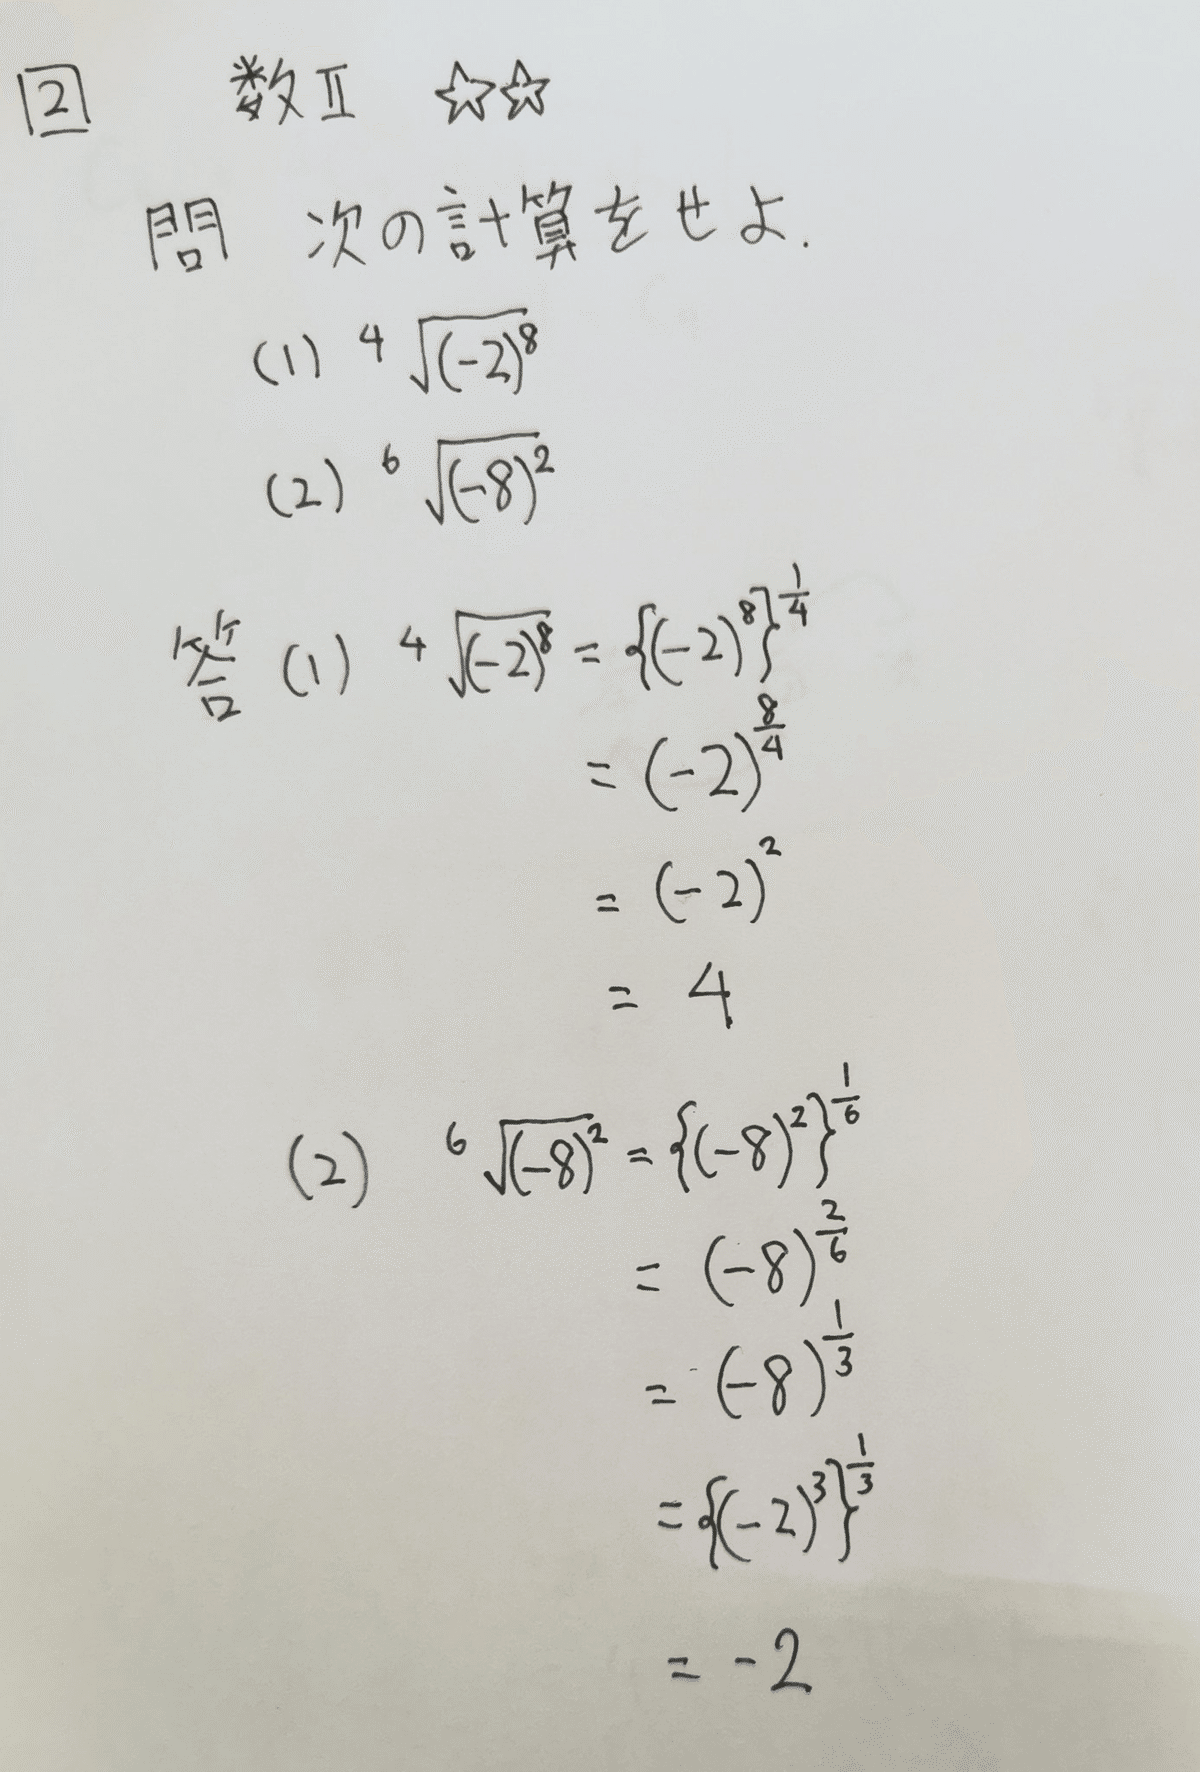 2 数Ⅱ ☆☆
問 次の計算をせよ.
(1) ⁴√(-2)⁸
(2) ⁶√(-8)²
答 (1) ⁴√(-2)⁸ = {(-2)⁸}^(1/4)
= (-2)^(8/4)
= (-2)²
= 4
(2) ⁶√(-8)² = {(-8)²}^(1/6)
= (-8)^(2/6)
= (-8)^(1/3)
= {(-2)³}^(1/3)
= -2